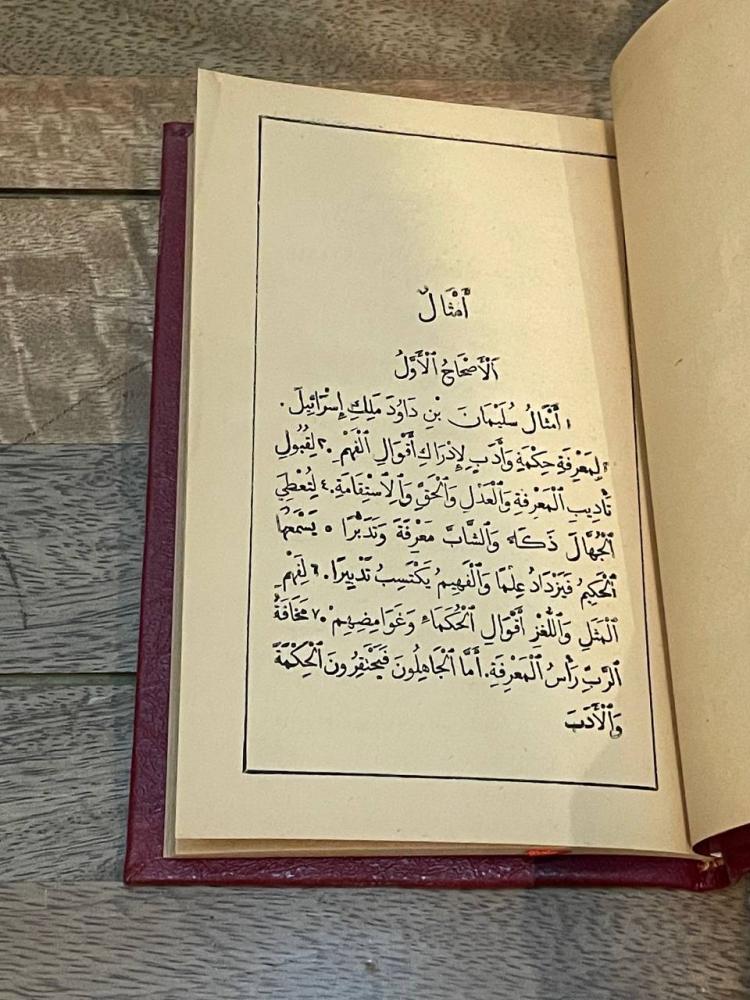 أَمْثَالٌ
اَلْأَصْحَاحُ ٱلْأَوَّلُ
١ أَمْثَالُ سُلَيْمَانَ بْنِ دَاوُدَ مَلِكِ إِسْرَائِيلَ.
٢ لِمَعْرِفَةِ حِكْمَةٍ وَأَدَبٍ لِإِدْرَاكِ أَقْوَالِ ٱلْفَهْمِ. ٣ لِقُبُولِ
تَأْدِيبِ ٱلْمَعْرِفَةِ وَٱلْعَدْلِ وَٱلْحَقِّ وَٱلِٱسْتِقَامَةِ. ٤ لِتُعْطِيَ
ٱلْجُهَّالَ ذَكَاءً وَٱلشَّابَّ مَعْرِفَةً وَتَدَبُّرًا ٥ يَسْمَعُهَا
ٱلْحَكِيمُ فَيَزْدَادُ عِلْمًا وَٱلْفَهِيمُ يَكْتَسِبُ تَدْبِيرًا. ٦ لِفَهْمِ
ٱلْمَثَلِ وَٱللُّغْزِ أَقْوَالِ ٱلْحُكَمَاءِ وَغَوَامِضِهِمْ. ٧ مَخَافَةُ
ٱلرَّبِّ رَأْسُ ٱلْمَعْرِفَةِ. أَمَّا ٱلْجَاهِلُونَ فَيَحْتَقِرُونَ ٱلْحِكْمَةَ
وَٱلْأَدَبَ